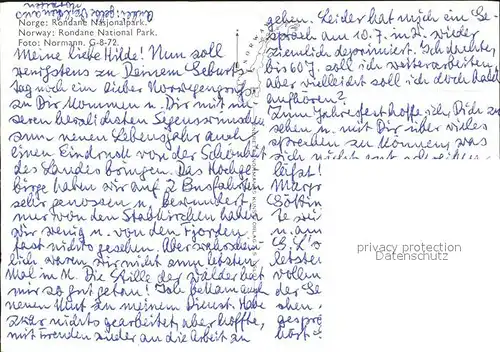 Norge: Rondane Nasjonalpark.
Norway: Rondane National Park.
Foto: Normann. G-8-72.
Meine liebe Hilde! Nun soll
wenigstens zu Deinem Geburts-
tag noch ein lieber Norwegengruß
zu Dir kommen u. Dir mit un-
seren herzlichsten Segenswünschen
zum neuen Lebensjahr auch
einen Eindruck von der Schönheit
des Landes bringen. Das Hochge-
birge haben wir auf 2 Busfahrten
sehr genossen u. bewundert,
nur von den Stabkirchen haben
wir wenig u. von den Fjorden
fast nichts gesehen. Aber wahrschein-
lich waren wir nicht zum letzten
Mal in N. Die Stille der Wälder hat
mir so gut getan! Ich bekam auch
neuen Mut zu meinem Dienst. Habe
zwar nichts gearbeitet, aber hoffe,
mit Freuden wieder an die Arbeit zu
gehen. Leider hat mich ein Ge-
spräch am 10.7. in wieder
ziemlich deprimiert. Ich dachte,
bis 60 J. soll ich weiterarbeiten,
aber vielleicht soll ich doch bald
aufhören?
Zum Jahresfest hoffe ich, Dich zu
sehen u. mit Dir über vieles
sprechen zu können, was
sich nicht
läßt!
Götting
te wi
u. am
letzter
vollen
der Se
sehen.
gesprä
hört
privacy protection
© DarkoneMedia